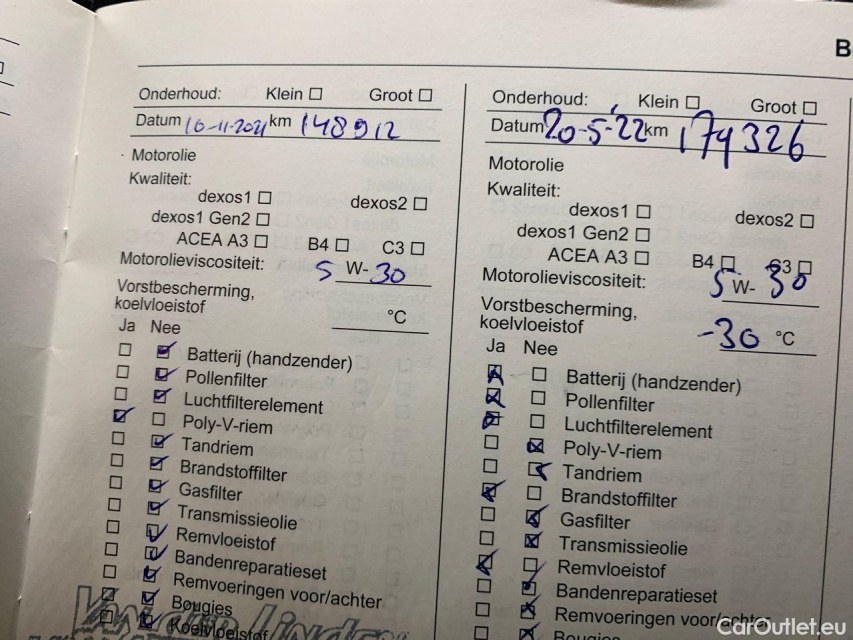 B
Onderhoud: Klein Groot
Datum 16-11-2021 km 148912
Motorolie
Kwaliteit:
dexos1 dexos2
dexos1 Gen2
ACEA A3 B4 C3
Motorolieviscositeit: 5 W- 30
Vorstbescherming,
koelvloeistof °C
Ja Nee
Batterij (handzender)
Pollenfilter
Luchtfilterelement
Poly-V-riem
Tandriem
Brandstoffilter
Gasfilter
Transmissieolie
Remvloeistof
Bandenreparatieset
Remvoeringen voor/achter
Bougies
Koelvloeistof
Van der Linden
Onderhoud: Klein Groot
Datum 20-5-22 km 174326
Motorolie
Kwaliteit:
dexos1 dexos2
dexos1 Gen2
ACEA A3 B4 C3
Motorolieviscositeit: 5 W- 30
Vorstbescherming,
koelvloeistof -30 °C
Ja Nee
Batterij (handzender)
Pollenfilter
Luchtfilterelement
Poly-V-riem
Tandriem
Brandstoffilter
Gasfilter
Transmissieolie
Remvloeistof
Bandenreparatieset
Remvoeringen voor/achter
Bougies
CarOutlet.eu